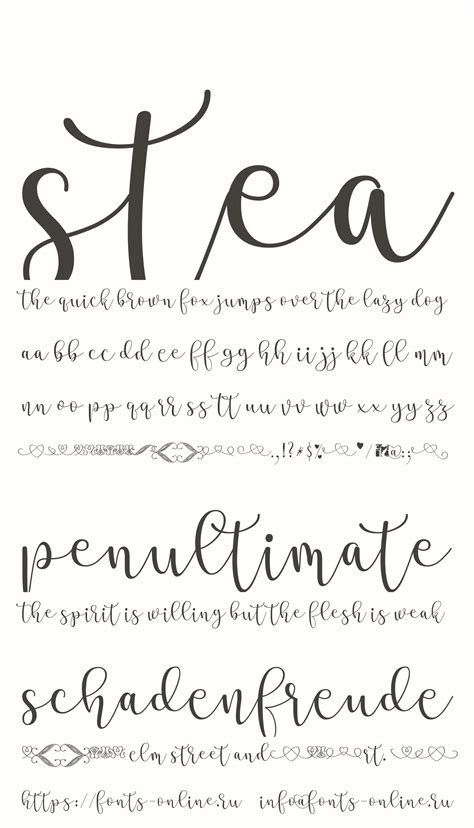 stea
the quick brown fox jumps over the lazy dog
aa bb cc dd ee ff gg hh ii jj kk ll mm
nn oo pp qq rr ss tt uu vv ww xx yy zz
.,!?*$% / @:;
penultimate
the spirit is willing but the flesh is weak
schadenfreude
elm street and rt.
https://fonts-online.ru info@fonts-online.ru